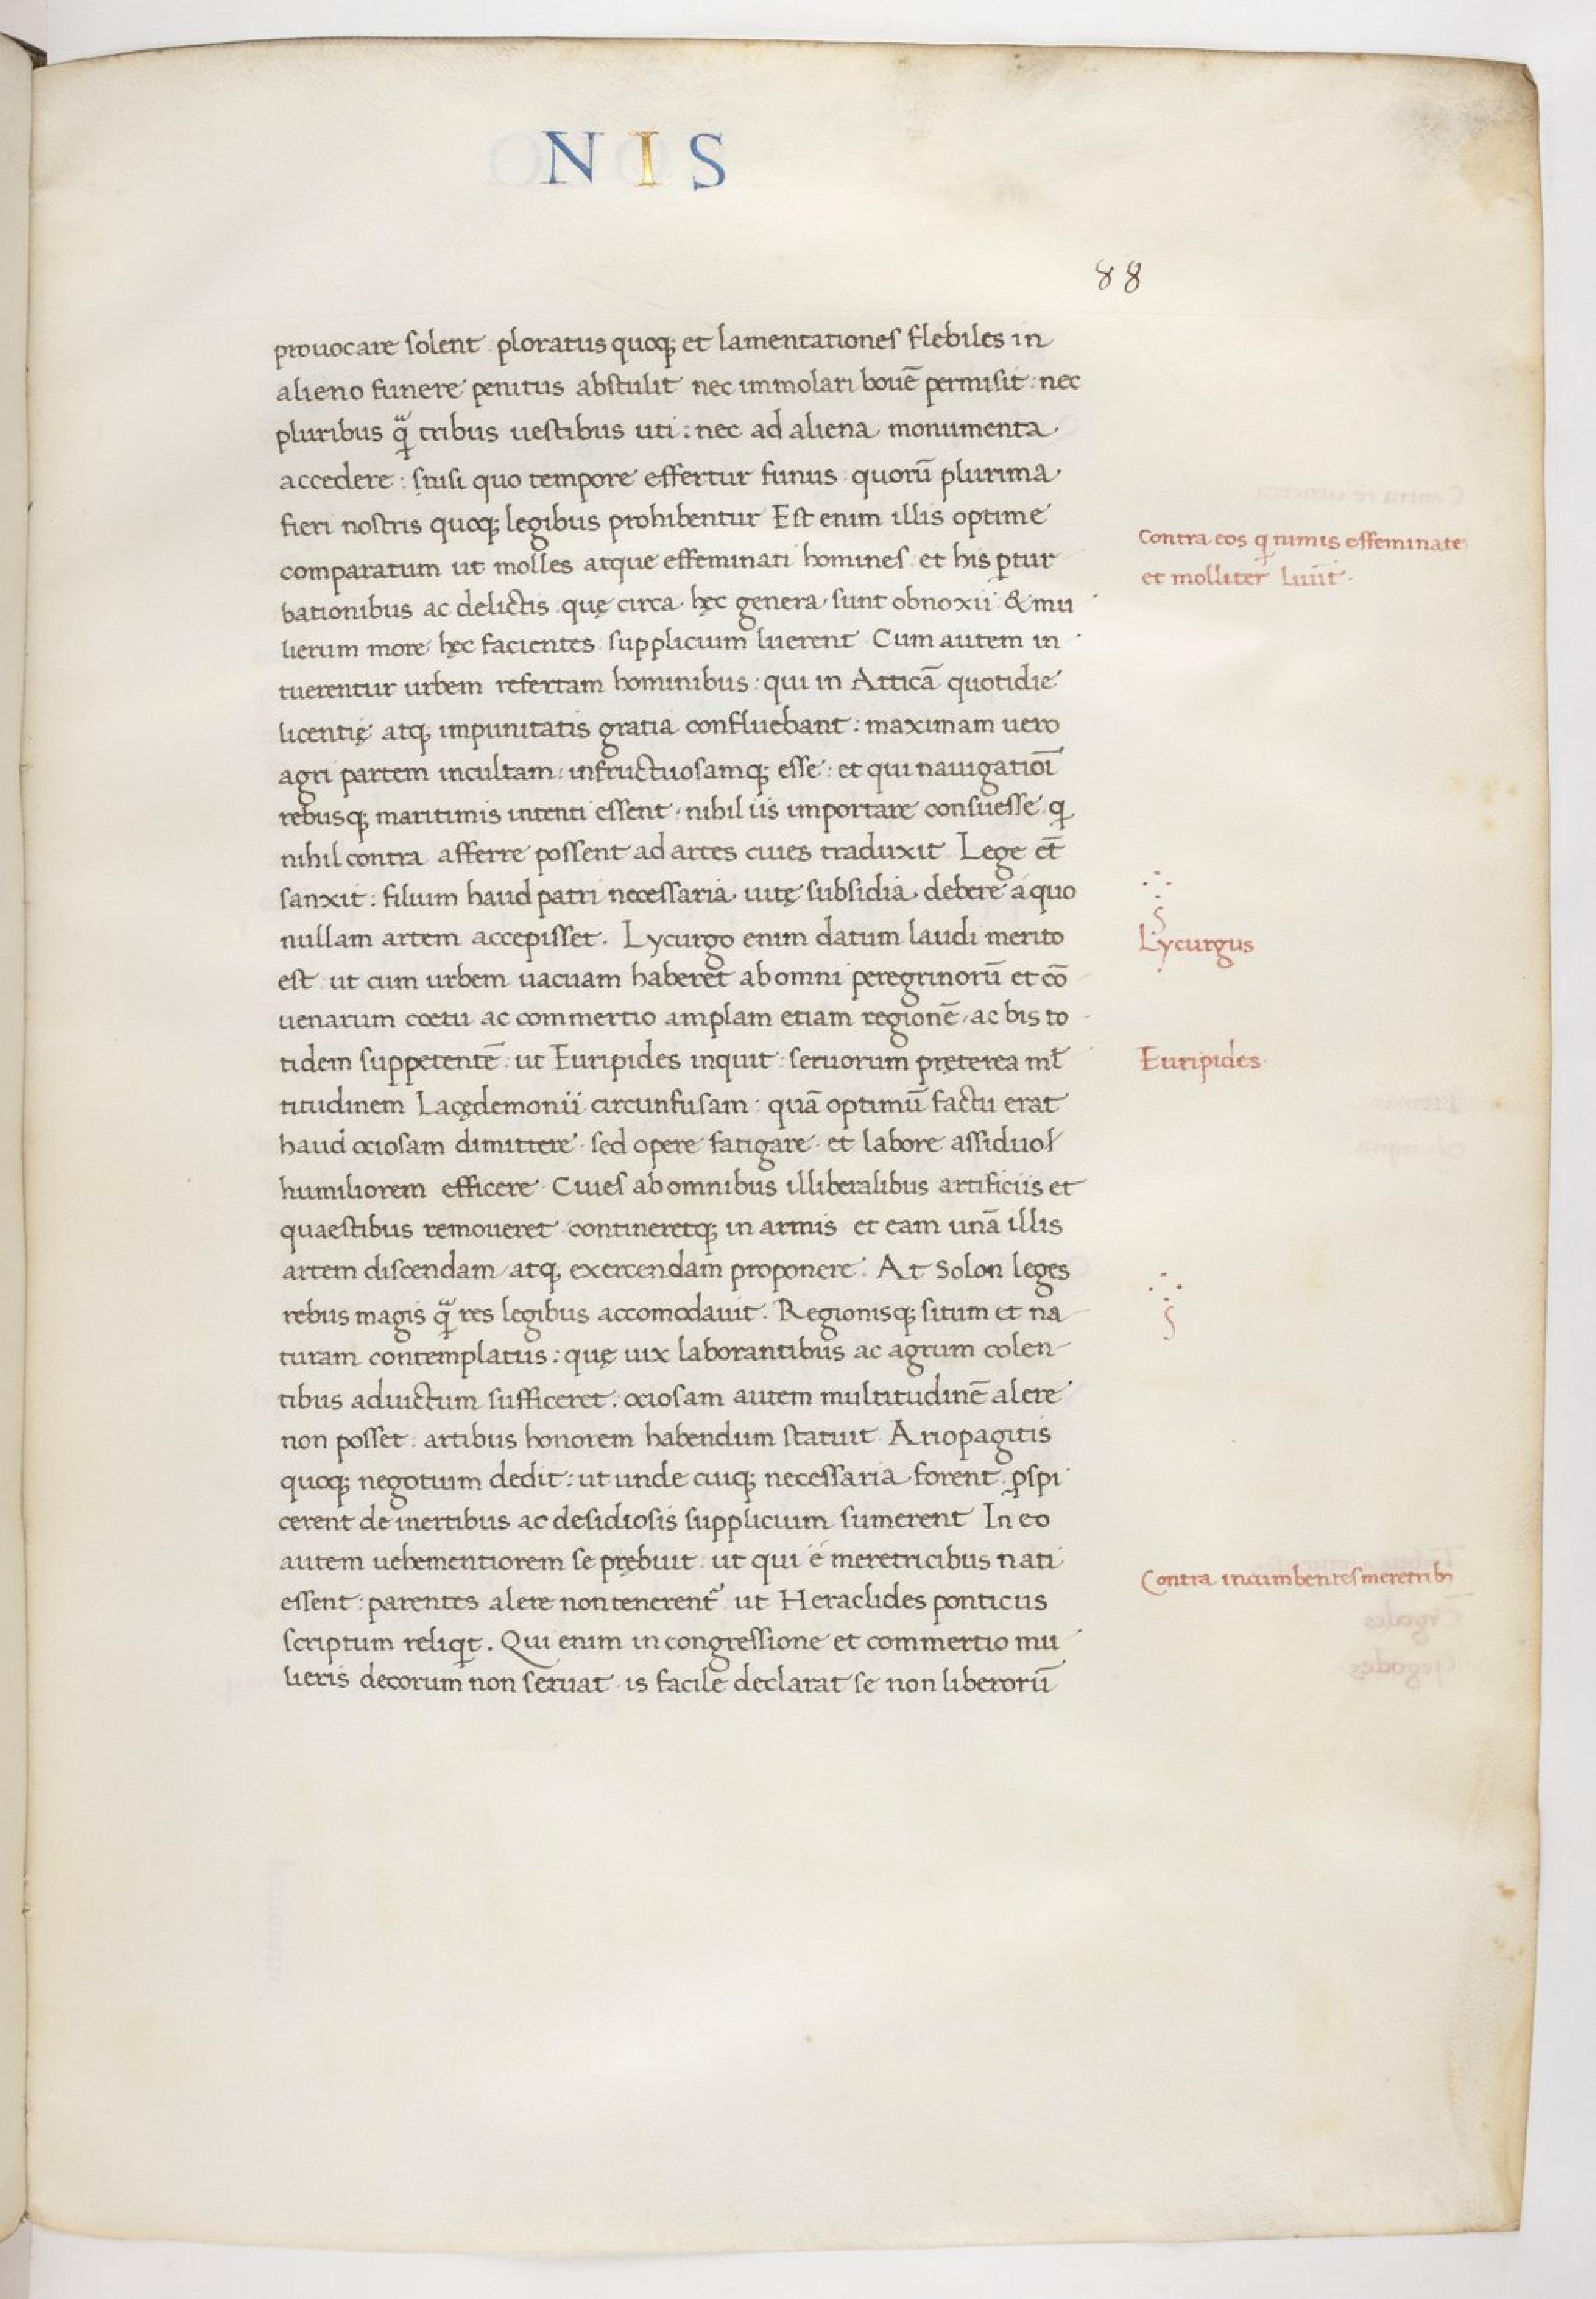 NIS
88
prouocare solent ploratus quoq; et lamentationes flebiles in
alieno funere penitus abstulit nec immolari bouē permisit : nec
pluribus q̃ tribus uestibus uti : nec ad aliena monumenta
accedere : nisi quo tempore effertur funus quorū plurima
fieri nostris quoq; legibus prohibentur Est enim illis optime
Contra eos q nimis effeminate
comparatum ut molles atque effeminati homines et his ꝑtur
et molliter uiuūt.
bationibus ac delictis quę circa hęc genera sunt obnoxii & mu
lierum more hęc facientes supplicium luerent Cum autem in
tuerentur urbem refertam hominibus : qui in Atticā quotidie
licentię atq; impunitatis gratia confluebant : maximam uero
agri partem incultam : infructuosamq; esse : et qui nauigatiōi
rebusq; maritimis intenti essent : nihil iis importare consuesse q
nihil contra afferre possent ad artes ciues traduxit Lege et̄
sanxit : filium haud patri necessaria uitę subsidia debere a quo
nullam artem accepisset. Lycurgo enim datum laudi merito
Lycurgus
est ut cum urbem uacuam haberet ab omni peregrinorū et cō
uenarum coetu ac commertio amplam etiam regionē, ac bis to
tidem suppetentē ut Euripides inquit : seruorum pręterea ml̄
Euripides
titudinem Lacędemonii circunfusam : quā optimū factu erat
haud ociosam dimittere sed opere fatigare et labore assiduo
humiliorem efficere Ciues ab omnibus illiberalibus artificiis et
quaestibus remoueret contineretq; in armis et eam unā illis
artem discendam, atq; exercendam proponere. At Solon leges
rebus magis q̃ res legibus accomodauit. Regionisq; situm et na
turam contemplatus : quę uix laborantibus ac agrum colen-
tibus ad uictum sufficeret : ociosam autem multitudinē alere
non posset : artibus honorem habendum statuit Ariopagitis
quoq; negotium dedit : ut unde cuiq; necessaria forent ꝑspi
cerent de inertibus ac desidiosis supplicium sumerent In eo
autem uehementiorem se prębuit ut qui e meretricibus nati
Contra incumbentes meretrib;
essent : parentes alere non tenerent᷑ ut Heraclides ponticus
scriptum reliqt. Qui enim in congressione et commertio mu
lieris decorum non seruat is facile declarat se non liberorū